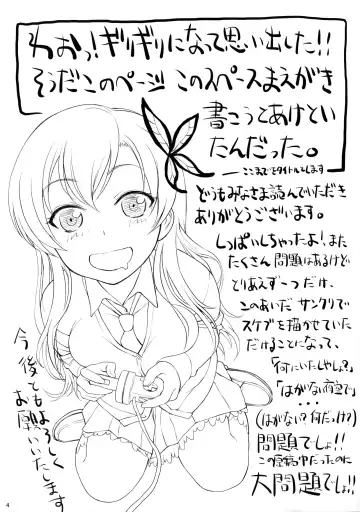 わおっ！ギリギリになって思い出した！！
そうだこのページ このスペースまえがき
書こうとあけとい
たんだった。
ここまでをタイトルとします
どうもみなさま読んでいただき
ありがとうございます。
しっぱいしちゃったよ！また
たくさん 問題はあるけど
とりあえず一つだけ、
このあいだ サンクリで
スケブを描かせていた
だけることになって、
「何にいたしやしょ？」
「はがない夜空で」
・・・
(はがない？何だっけ？)
問題でしょ！！
この原稿中だったのに
大問題でしょ！！
今後ともよろしく
お願いいたします
4